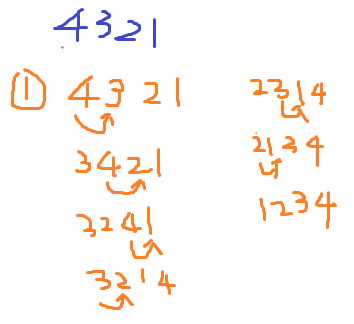 4321
① 4321
3421
3241
3214
2314
2134
1234